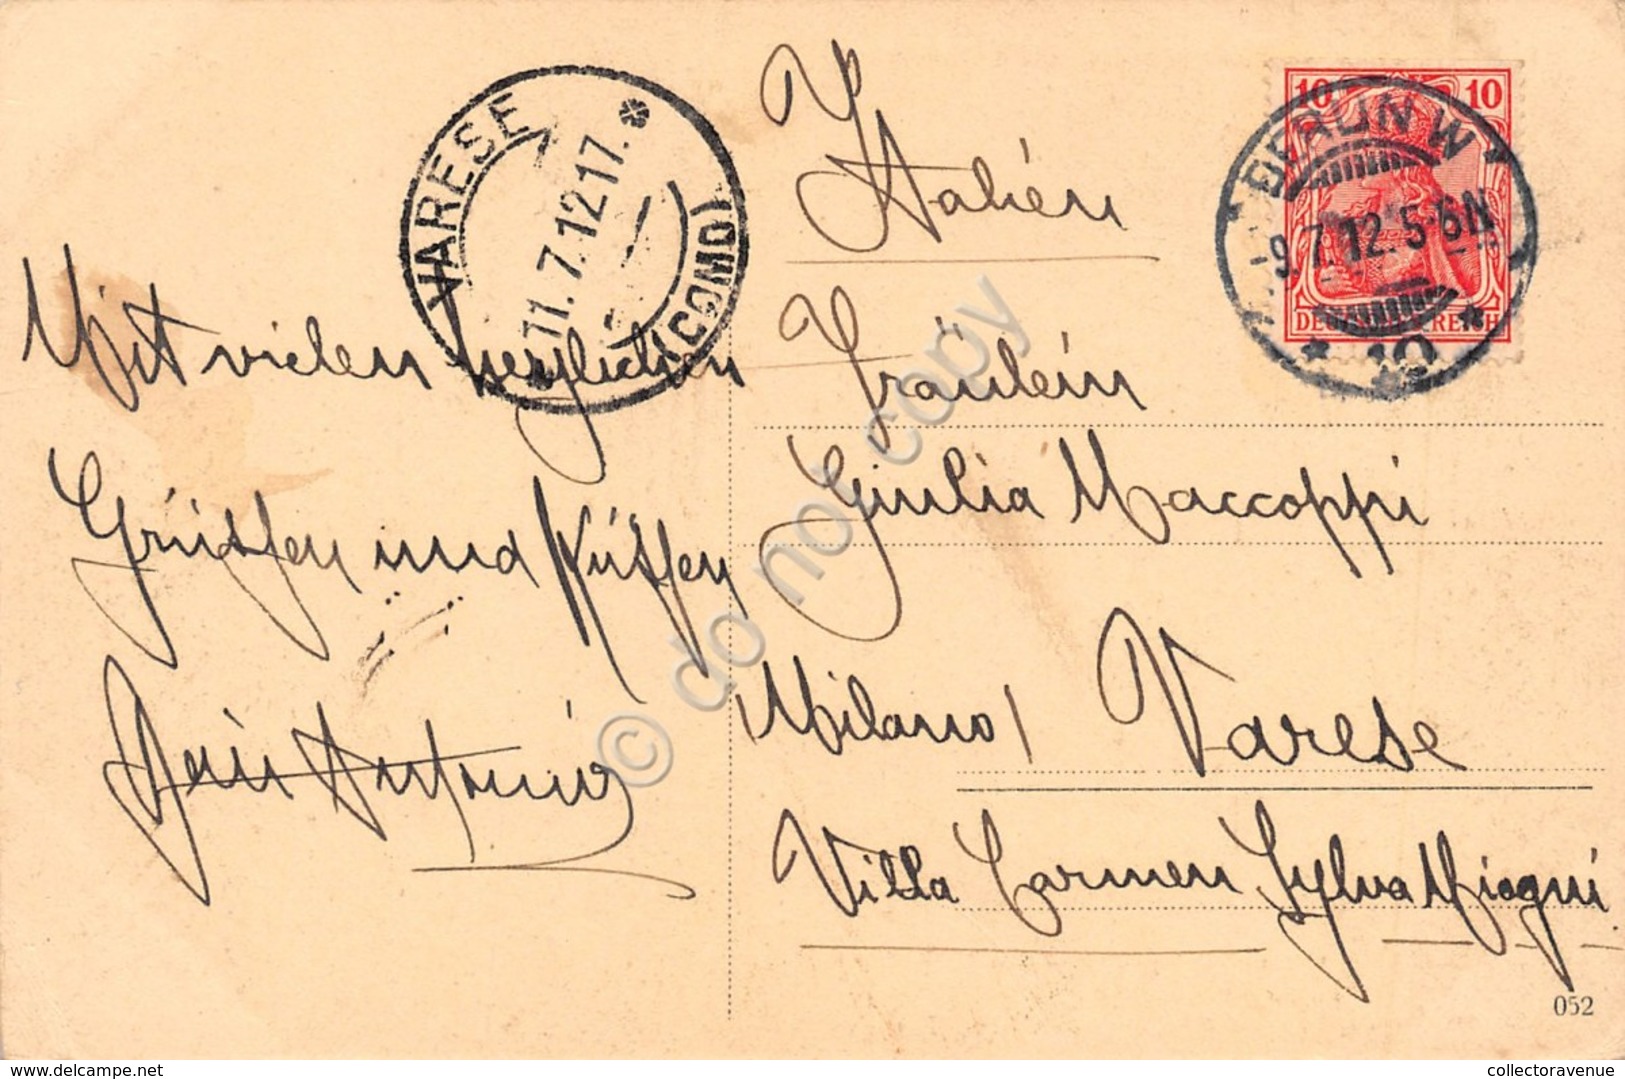 VARESE
11.7.12 17.
(COMO)
10 10
BERLIN W
9.7.12. 5-6N
DEUTSCHES REICH
* 10 *
Italien
Fräulein
Giulia Maccoppi
Milano / Varese
Villa Carmen Sylva Miogni
Mit vielen herzlichen
Grüssen und Küssen
Dein Antonio
© do not copy
052
www.delcampe.net
collectoravenue